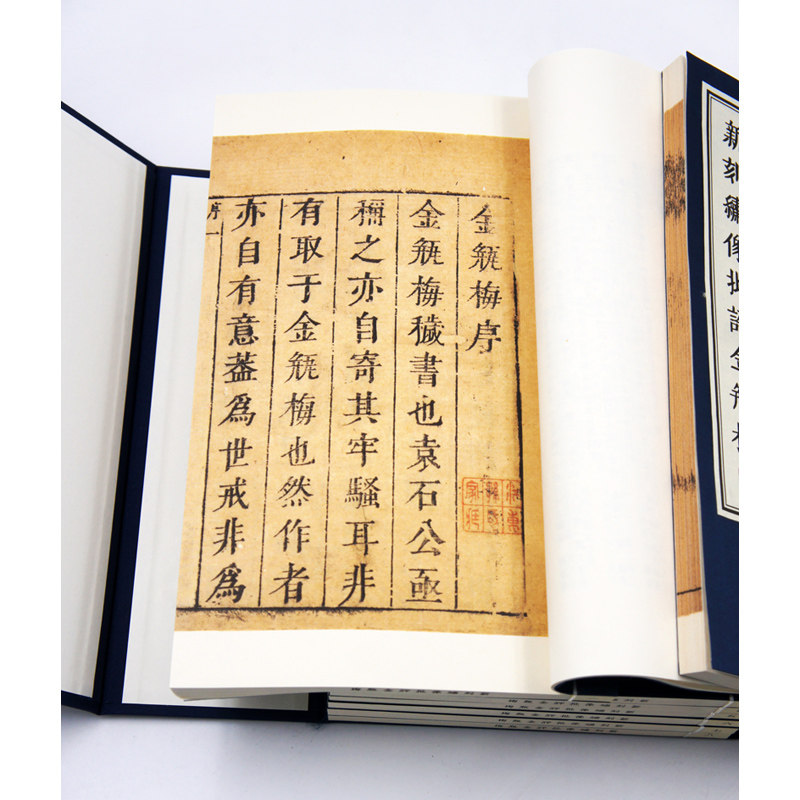 新刻繡像批評金瓶梅
金瓶梅序
金瓶梅穢書也袁石公亟
稱之亦自寄其牢騷耳非
有取于金瓶梅也然作者
亦自有意葢爲世戒非爲
序 一